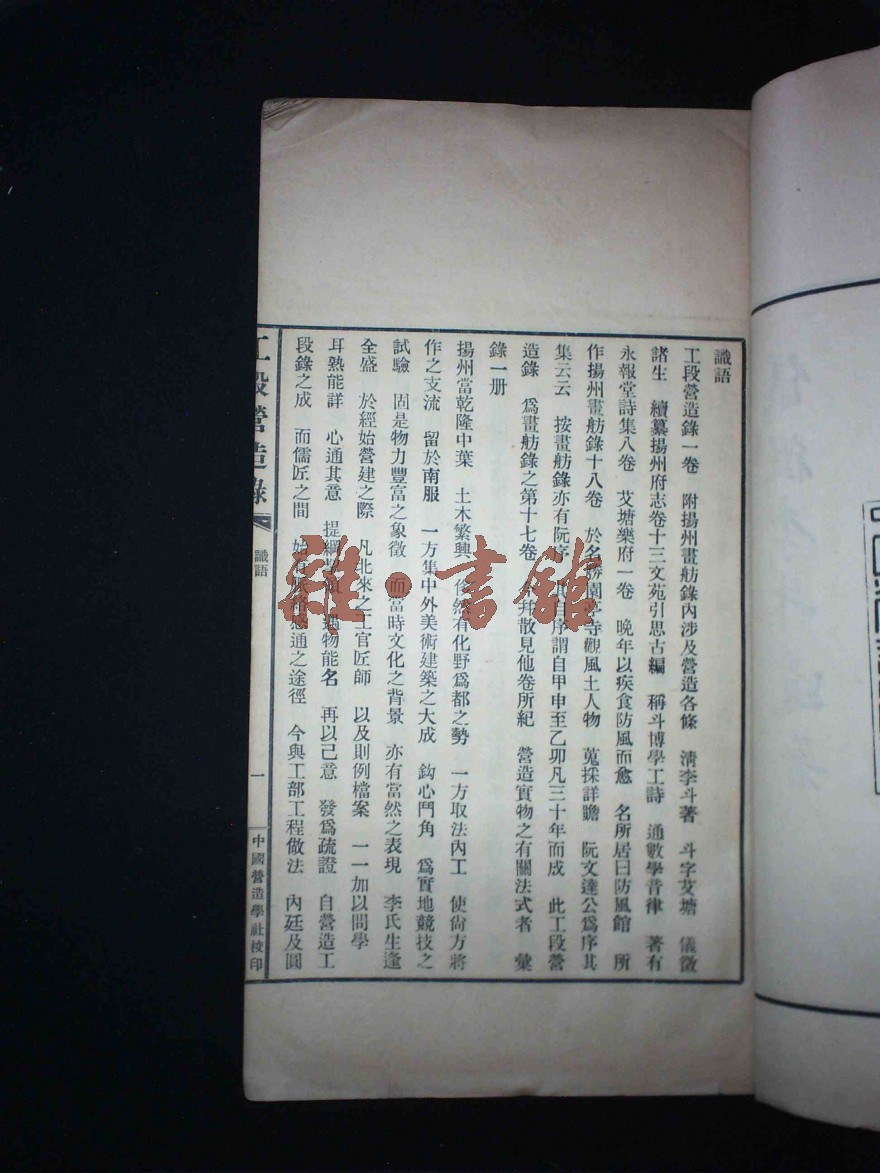 識語
工段營造錄一卷 附揚州畫舫錄內涉及營造各條 清李斗著 斗字艾塘 儀徵
諸生 續纂揚州府志卷十三文苑引思古編 稱斗博學工詩 通數學音律 著有
永報堂詩集八卷 艾塘樂府一卷 晚年以疾食防風而愈 名所居曰防風館 所
作揚州畫舫錄十八卷 於名勝園亭寺觀風土人物 蒐採詳贍 阮文達公為序其
集云云 按畫舫錄亦有阮序 其自序謂自甲申至乙卯凡三十年而成 此工段營
造錄 為畫舫錄之第十七卷 散見他卷所紀 營造實物之有關法式者 彙
錄一册
揚州當乾隆中葉 土木繁興 然有化野爲都之勢 一方取法內工 使尙方將
作之支流 留於南服 一方集中外美術建築之大成 鈎心鬥角 爲實地競技之
試驗 固是物力豐富之象徵 而當時文化之背景 亦有當然之表現 李氏生逢
全盛 於經始營建之際 凡北來之工官匠師 以及則例檔案 一一加以問學
耳熟能詳 心通其意 提綱 遇物能名 再以己意 發爲疏證 自營造工
段錄之成 而儒匠之間 始有 感通之途徑 今與工部工程做法 內廷及圓
工段營造錄
識語
一
中國營造學社校印
雜·書館